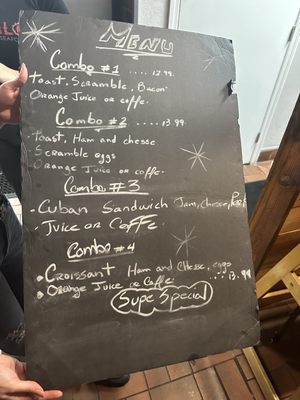 MENU
Combo #1 .... 12.99
Toast, Scramble, Bacon
Orange Juice or coffe.
Combo #2 ...... 13.99
• Toast, Ham and chesse
• Scramble eggs
Orange Juice or coffe.
Combo #3
• Cuban Sandwich Jam, Cheese, Pork
• Juice or Coffe
Combo #4
• Croissant Ham and Chesse, eggs
• Orange Juice or Coffe ..... 13.99
Supe Special